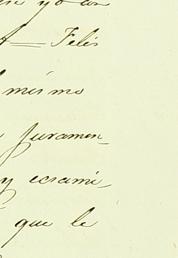 — Felis
mismo
juramen_
y ecsami_
que le